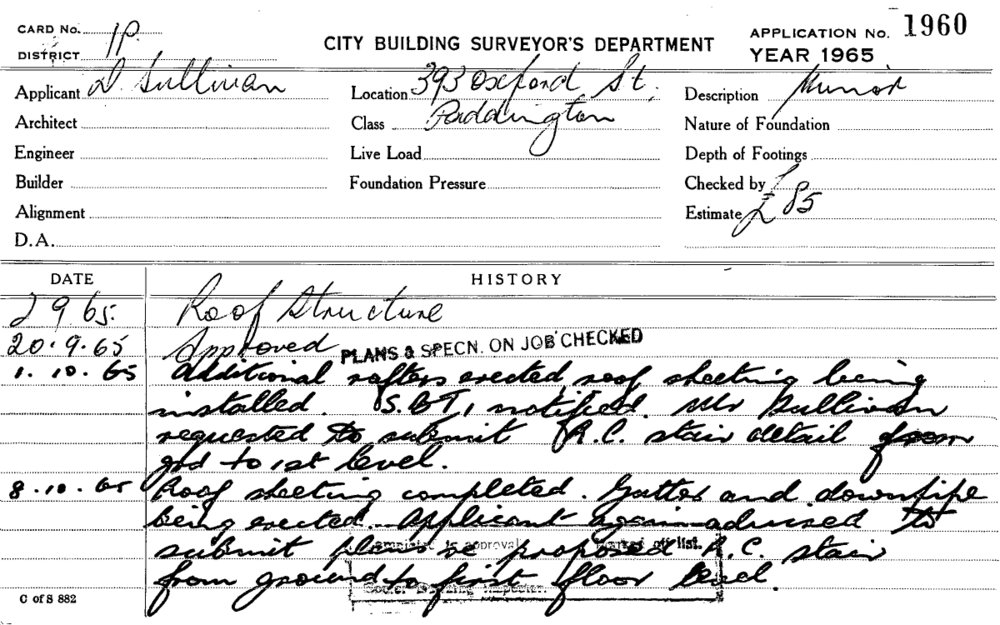 CARD No. 1P.
DISTRICT
CITY BUILDING SURVEYOR'S DEPARTMENT
APPLICATION No. 1960
YEAR 1965
Applicant D. Sullivan
Location 393 Oxford St,
Description Minor
Architect
Class Paddington
Nature of Foundation
Engineer
Live Load
Depth of Footings
Builder
Foundation Pressure
Checked by
Alignment
Estimate £85
D.A.
DATE HISTORY
2 9 65. Roof Structure
20.9.65 Approved PLANS & SPECN. ON JOB CHECKED
1.10.65 Additional rafters erected, roof sheeting being
installed. S.B.I, notified. Mr Sullivan
requested to submit R.C. stair detail from
grd to 1st level.
8.10.65 Roof sheeting completed. Gutter and downpipe
being erected. Applicant again advised to
submit plans re proposed R.C. stair
from ground to first floor level.
approval
off list.
Inspector.
C of S 882